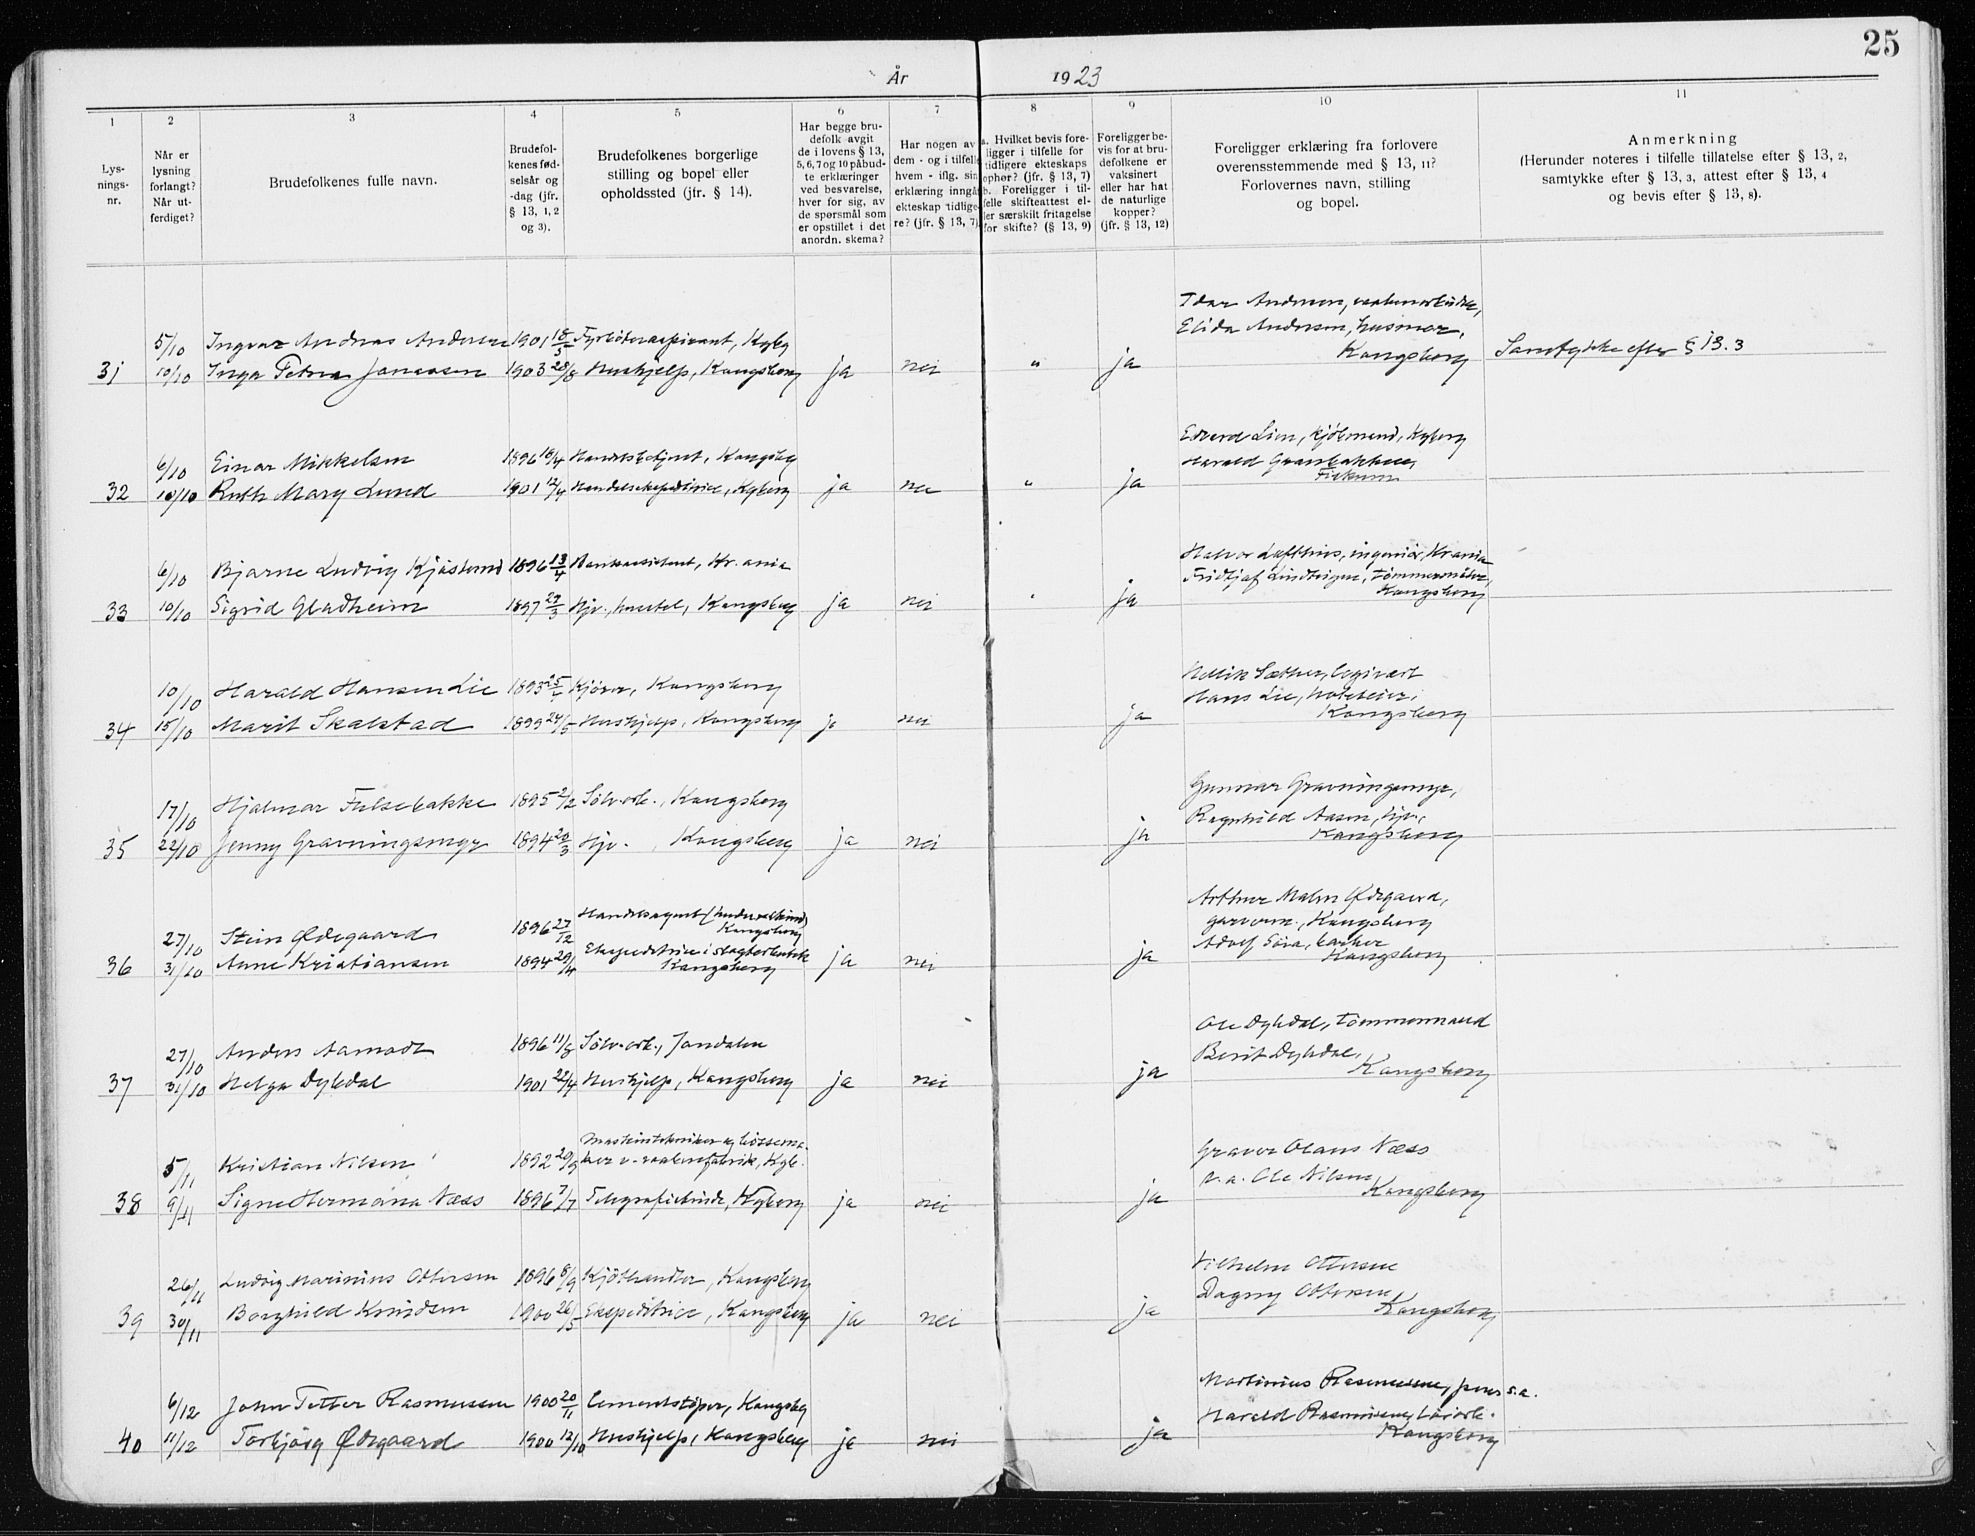 25
År 1923
1 2 3 4 5 6 7 8 9 10 11
Lys-
nings-
nr.
Når er
lysning
forlangt?
Når ut-
ferdiget?
Brudefolkenes fulle navn.
Brudefol-
kenes fød-
selsår og
-dag (jfr.
§ 13, 1, 2
og 3).
Brudefolkenes borgerlige
stilling og bopel eller
opholdssted (jfr. § 14).
Har begge bru-
defolk avgit
de i lovens § 13,
5, 6, 7 og 10 påbud-
te erklæringer
ved besvarelse,
hver for sig, av
de spørsmål som
er opstillet i det
anordn. skema?
Har nogen av
dem - og i tilfelle
hvem - iflg. sin
erklæring inngåt
ekteskap tidlige-
re? (jfr. § 13, 7)
a. Hvilket bevis fore-
ligger i tilfelle for
tidligere ekteskaps
ophør? (jfr. § 13, 7)
b. Foreligger i til-
felle skifteattest el-
ler særskilt fritagelse
for skifte? (§ 13, 9)
Foreligger be-
vis for at bru-
defolkene er
vaksinert
eller har hat
de naturlige
kopper?
(jfr. § 13, 12)
Foreligger erklæring fra forlovere
overensstemmende med § 13, 11?
Forlovernes navn, stilling
og bopel.
Anmerkning
(Herunder noteres i tilfelle tillatelse efter § 13, 2,
samtykke efter § 13, 3, attest efter § 13, 4
og bevis efter § 13, 8).
Andersen,
Elida Andersen, husmor,
5/10 Ingvar Andreas Andersen 1901 18/3 Fyrbøteraspirant, Kgbg
Kongsberg Samtykke efter § 13.3
31 10/10 Inga Petra 1903 28/8 Hushjelp, Kongsberg ja nei " ja
Edvard Lien, kjøbmand, Kgberg
6/10 Einar Mikkelsen 1896 18/4 Handelsbetjent, Kongsbg
Harald
32 10/10 Ruth Mary Lund 1901 12/4 Handelsekspeditrice, Kgberg ja nei " ja
Fiskum
Halvor Lofthus, ingeniør, Kr.ania
6/10 Bjarne Ludvig 1896 13/4 Bankassistent, Kr.ania
Fridtjof
Kongsberg
33 10/10 Sigrid Gladheim 1897 29/3 Hjv., Kongsberg ja nei " ja
10/10 Harald Hansen Lie 1893 Kjører, Kongsberg
Hans Lie,
Kongsberg
34 15/10 Marit Skalstad 1899 24/5 Hushjelp, Kongsberg ja nei ja
Gunnar Gravningsmyr,
17/10 Hjalmar Fulsebakke 1895 2/2 Sølv.arb., Kongsberg
Ragnhild Aasen, hjv.,
Kongsberg
35 22/10 Jenny Gravningsmyr 1894 20/3 Hjv., Kongsberg ja nei ja
Arthur Malm Ødegaard,
garverm., Kongsberg
Handelsagent
27/10 Stein Ødegaard 1896 27/12 Kongsberg
Adolf barber
Kongsberg
Ekspeditrice i slagterbutik
36 31/10 Anne Kristiansen 1894 29/4 Kongsberg ja nei ja
Ole Dyhdal, tømmermand
27/10 Anders Aamodt 1896 11/8 Sølv.arb., Jondalen
Berit Dyhdal,
Kongsberg
37 31/10 Helga Dyhdal 1901 22/4 Hushjelp, Kongsberg ja nei ja
Maskintekniker og bøssema-
Graver Olaus Næss
5/11 Kristian Nilsen 1892 29/9 ker v. vaabenfabrik, Kgb.
v.a. Ole Nilsen
Kongsberg
38 9/11 Signe Hermana Næss 1896 7/7 Telegrafistinde, Kgberg ja nei ja
Vilhelm Ottersen
26/11 Ludvig Marinius Ottersen 1896 8/9 Kjøthandler, Kongsberg
Dagny Ottersen,
Kongsberg
39 30/11 Borghild Knudsen 1900 26/5 Ekspeditrice, Kongsberg ja nei ja
Martinius Rasmussen, pens.s.a.
6/12 John Petter Rasmussen 1900 20/11 Cementstøper, Kongsbg
Harald Rasmussen,
Kongsberg
40 11/12 Torbjörg Ødegaard 1900 12/10 Hushjelp, Kongsberg ja nei ja